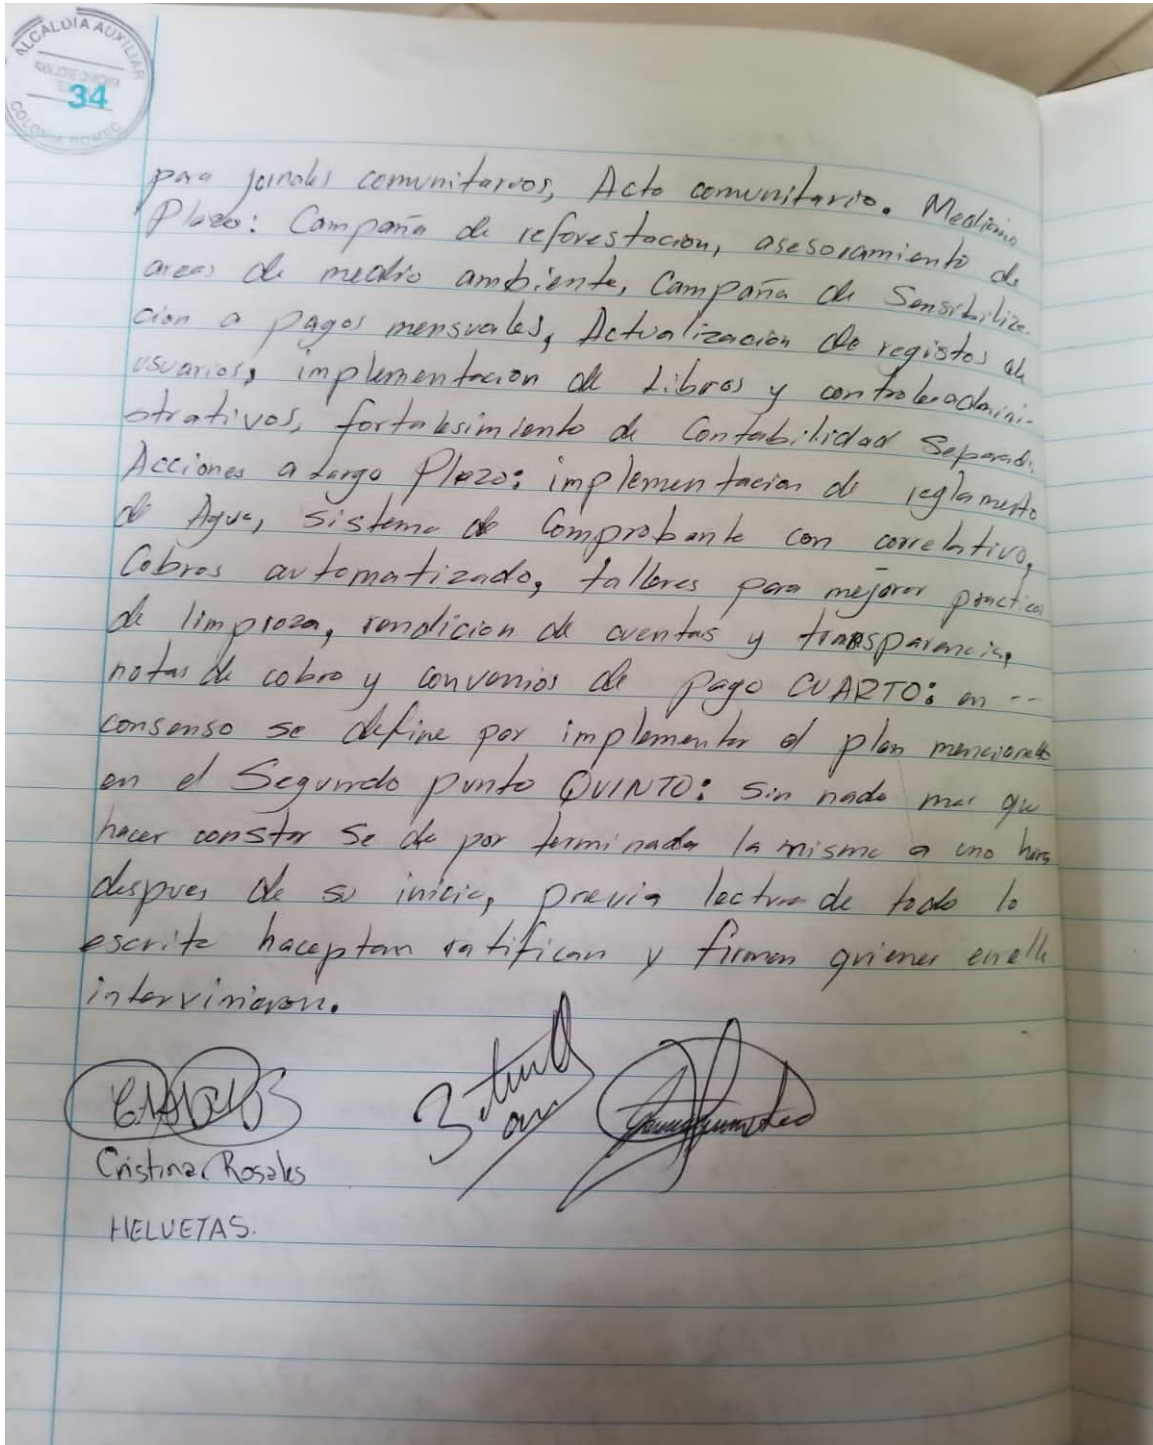 ALCALDIA AUXILIAR
34
COLONIA ROMEC
para jornales comunitarios, Acto comunitario. Mediano
Plazo: Campaña de reforestacion, asesoramiento de
areas de medio ambiente, Campaña de Sensibiliza-
cion a pagos mensuales, Actualización de registos de
usuarios, implementacion de Libros y controles admini-
strativos, fortalesimiento de Contabilidad Separada
Acciones a Largo Plazo: implementacion de reglamento
de Agua, sistema de Comprobante con correlativo,
Cobros automatizado, talleres para mejorar practicas
de limpieza, rendicion de cuentas y transparencia,
notas de cobro y convenios de pago CUARTO: en --
consenso se define por implementar el plan mencionado
en el Segundo punto QUINTO: Sin nada mas que
hacer constar se da por terminada la misma a una hora
despues de su inicio, previa lectura de todo lo
escrito haceptan ratifican y firman quienes en ella
intervinieron.
Cristina Rosales
HELVETAS.